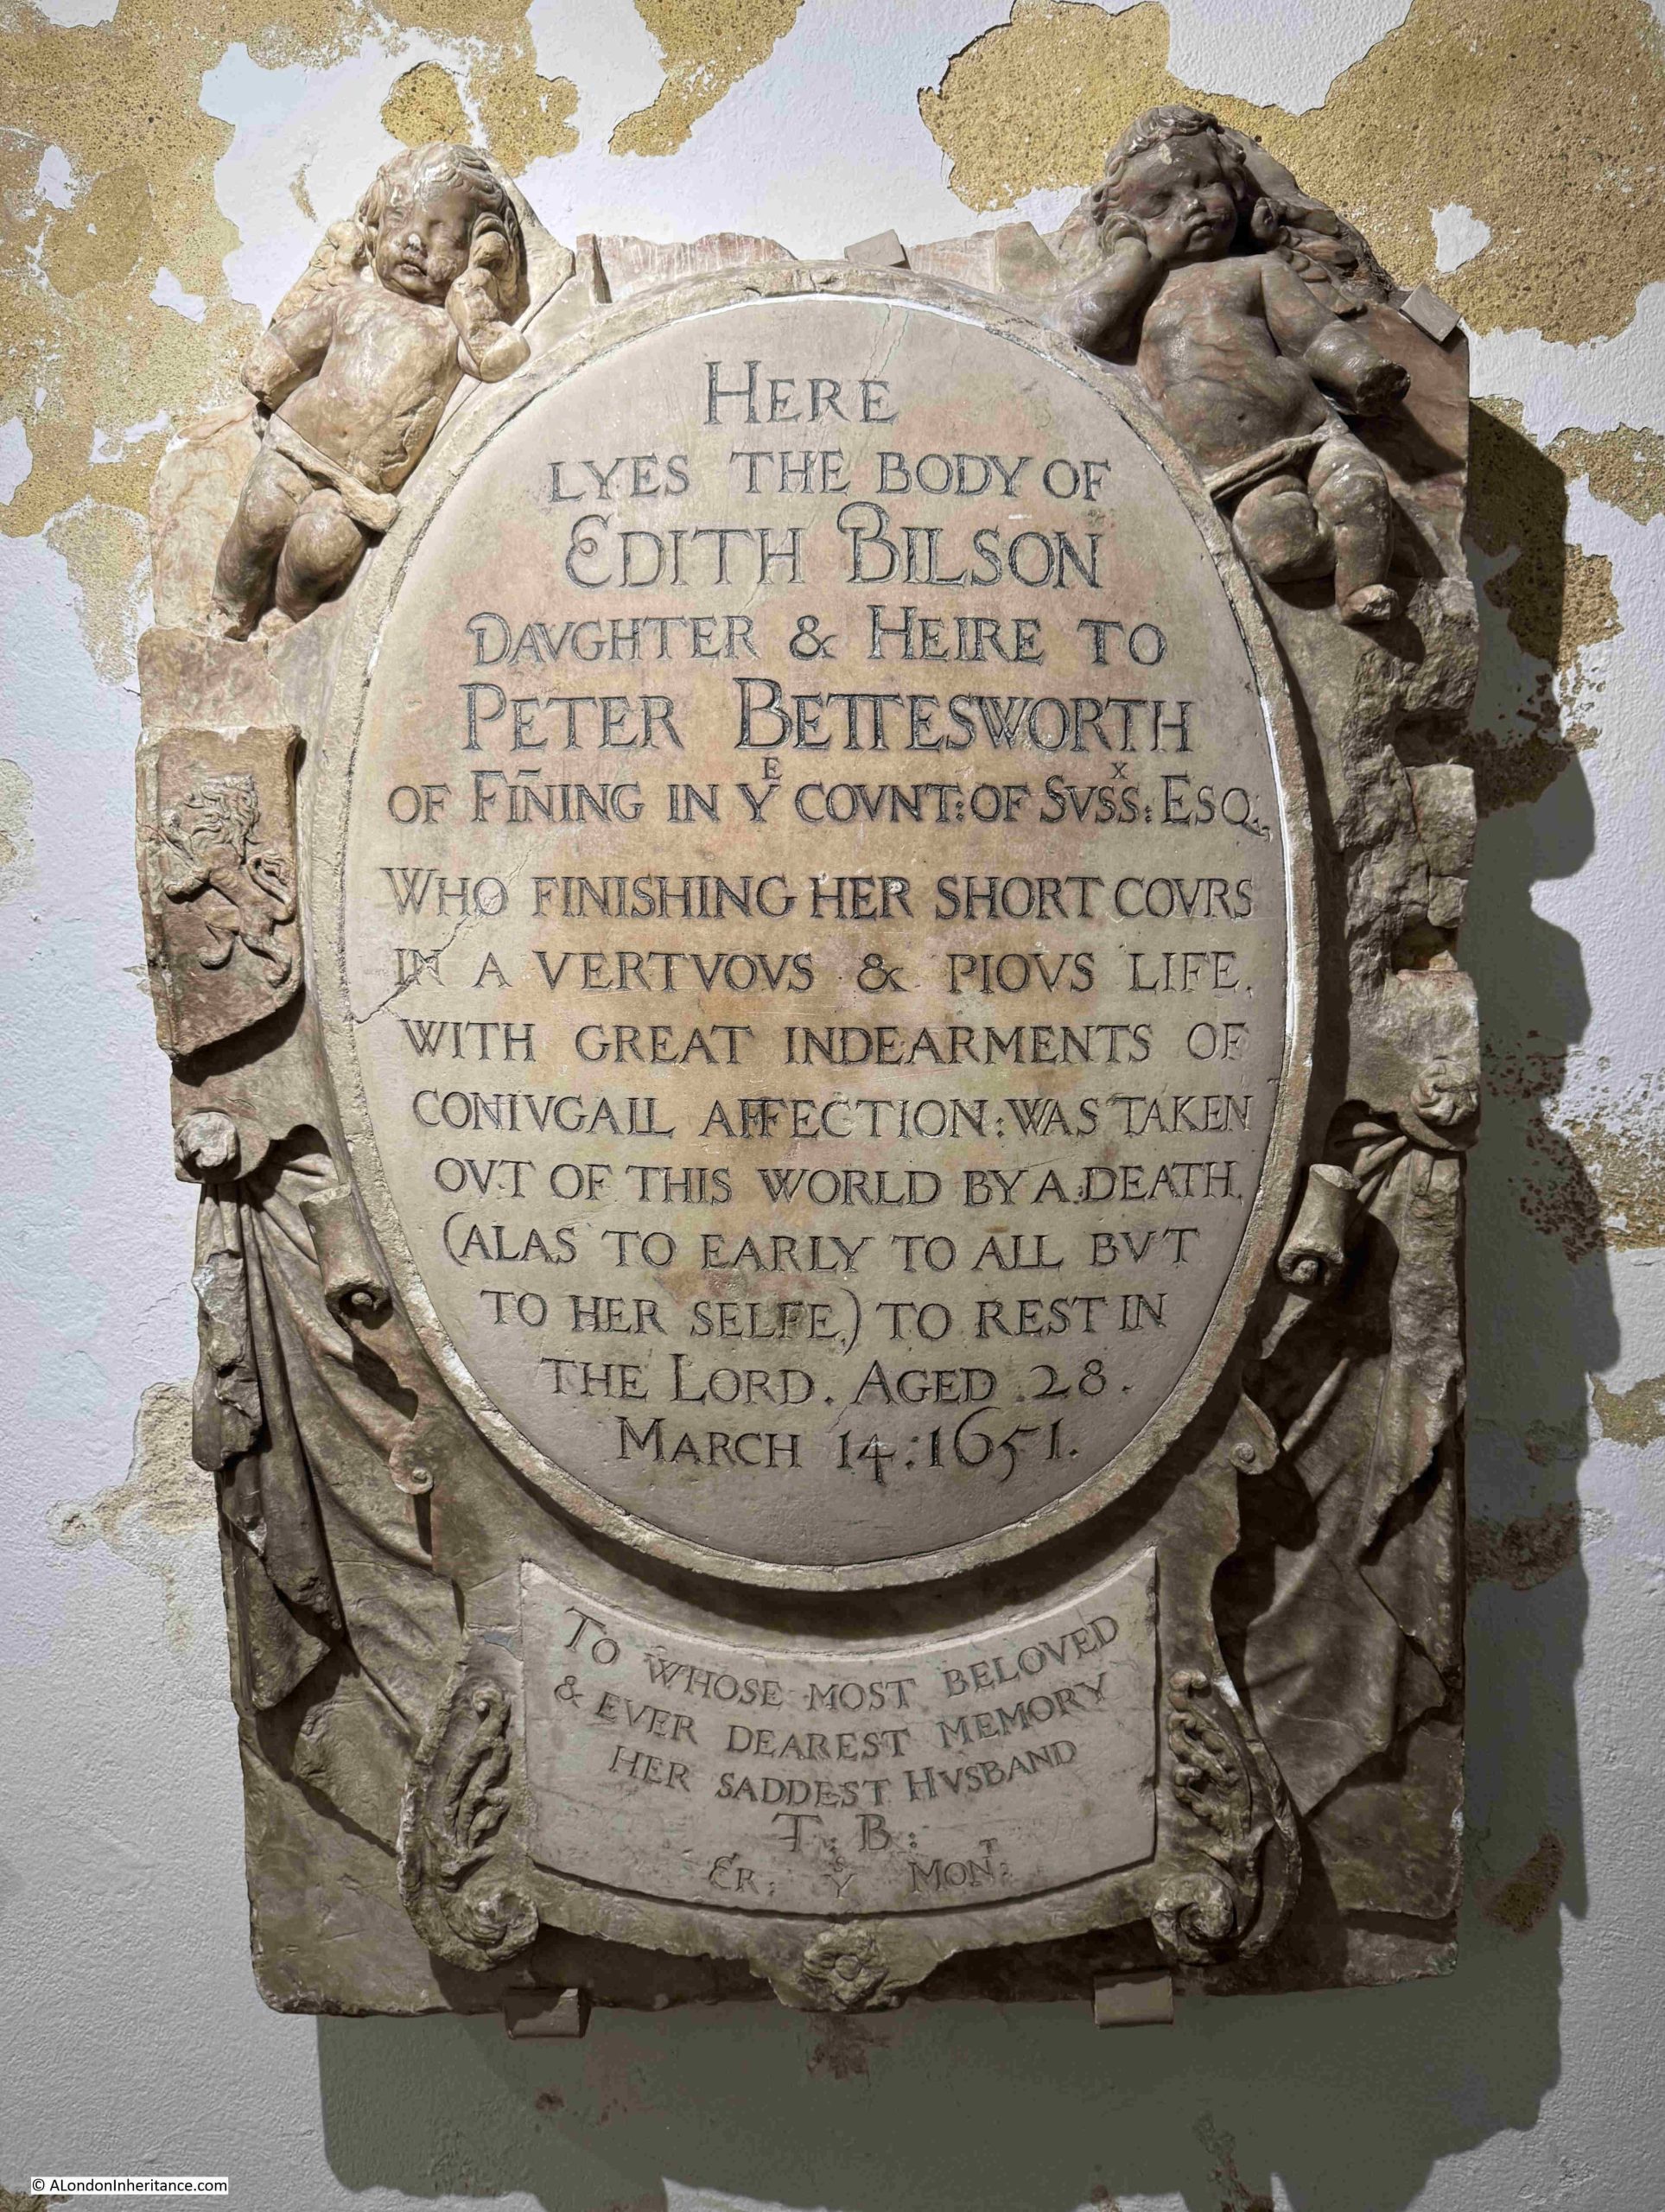 HERE
LYES THE BODY OF
EDITH BILSON
DAVGHTER & HEIRE TO
PETER BETTESWORTH
OF FIÑING IN Yᴱ COVNT: OF SVSSˣ: ESQ;
WHO FINISHING HER SHORT COVRS
IN A VERTVOVS & PIOVS LIFE,
WITH GREAT INDEARMENTS OF
CONIVGALL AFFECTION: WAS TAKEN
OVT OF THIS WORLD BY A DEATH,
(ALAS TO EARLY TO ALL BVT
TO HER SELFE,) TO REST IN
THE LORD. AGED .28.
MARCH 14: 1651.
TO WHOSE MOST BELOVED
& EVER DEAREST MEMORY
HER SADDEST HVSBAND
T: B:
ER: Yˢ MONᵀ:
© ALondonInheritance.com